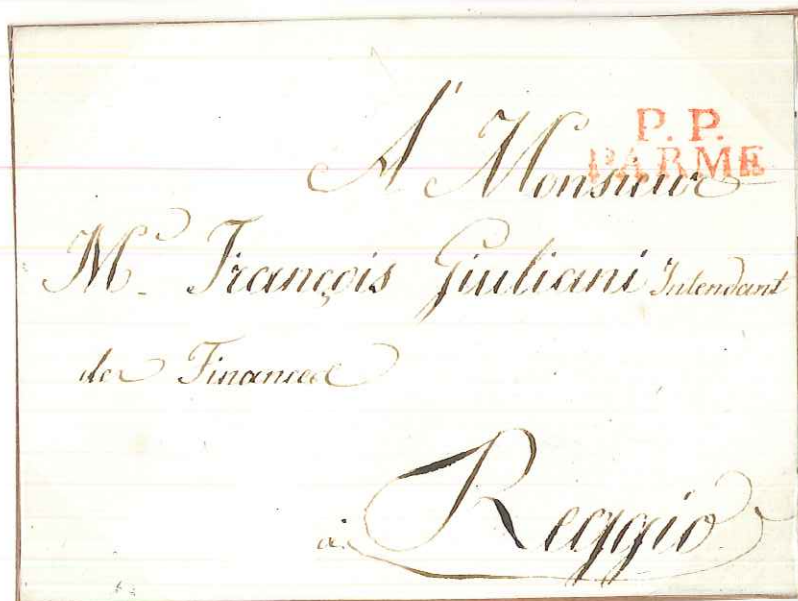 P. P.
PARME
A Monsieur
Mr. François Giuliani Intendant
de Finances
à Reggio